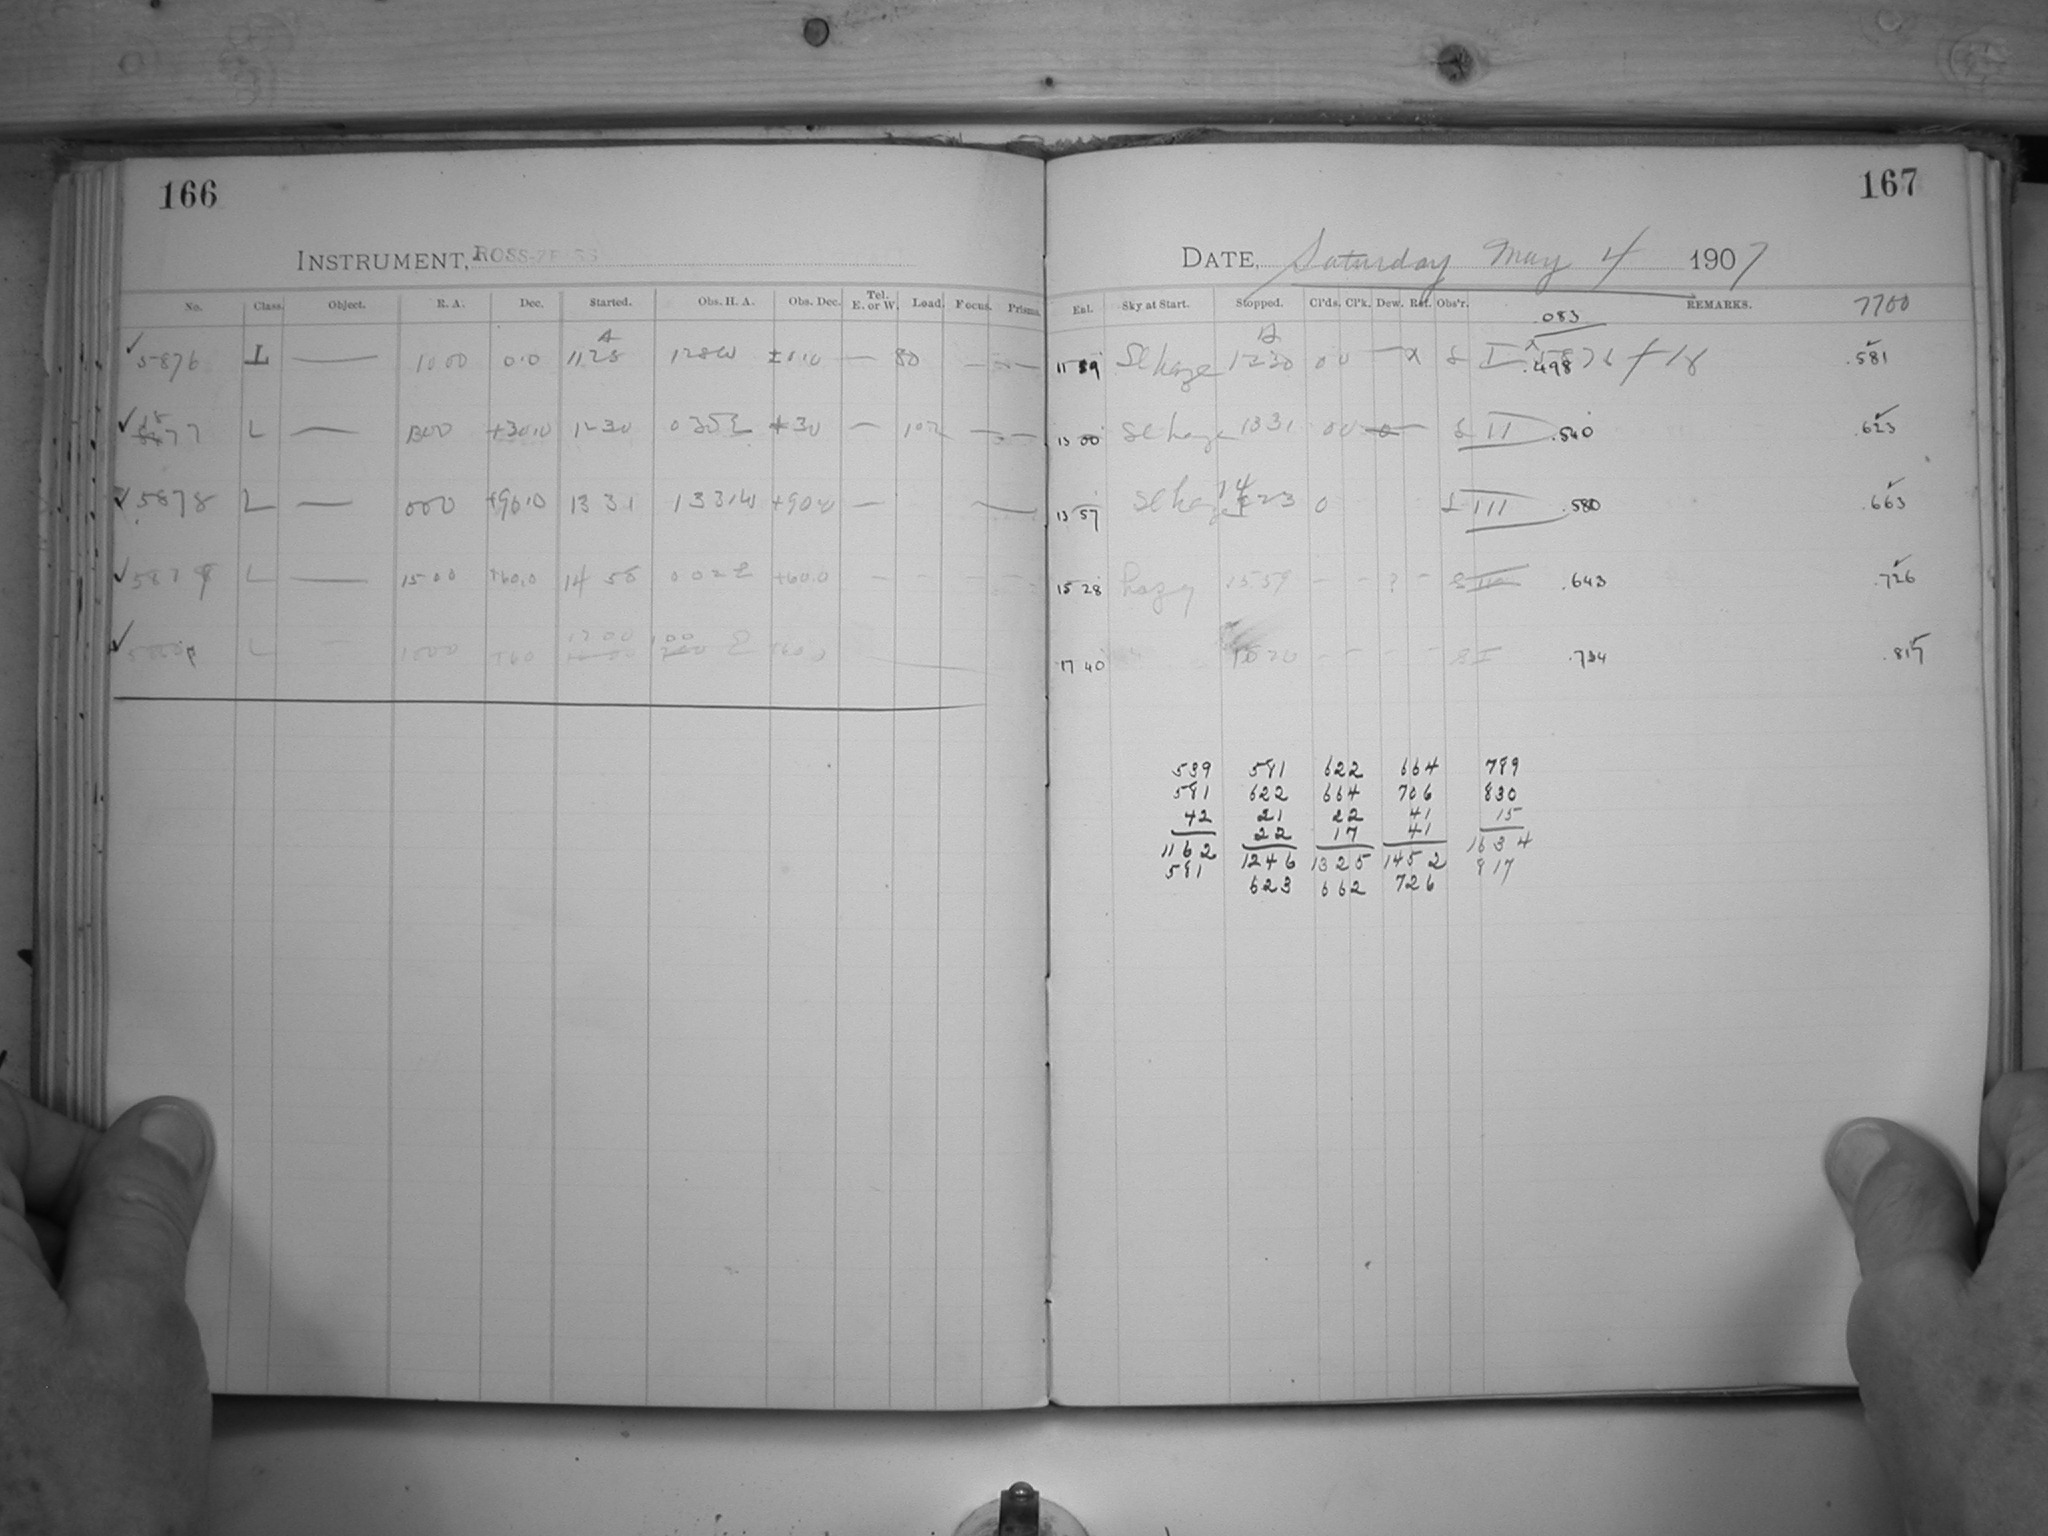 166
167
INSTRUMENT, ROSS-ZEISS
DATE, Saturday May 4 1907
No. Class. Object. R. A. Dec. Started. Obs. H. A. Obs. Dec. Tel. E. or W. Load. Focus. Prisms.
Eal. Sky at Start. Stopped. Cl'ds. Cl'k. Dew. Rat. Obs'r. REMARKS. 7700
.083
5876 L — 1000 0.0 1128 128W ±0.0 — 80 — —
11 59 Sl haze 1230 00 — x S I .498 5876 f 18 .581
5877 L — 1300 +30.0 1230 030E +30 — 102 — —
13 00 Sl haze 1331 00 — S II .540 .623
5878 L — 000 +90.0 1331 1331W +90.0 — —
13 57 Sl haze 1423 0 S III .580 .663
5879 L — 1500 +60.0 14 58 002E +60.0 — — — —
15 28 hazy 1559 — — ? — S .643 .726
L — +60 1700 100 E +60.0
17 40 — — — — S I .734 .817
539 581 622 664 789
581 622 664 706 830
42 21 22 41 15
22 17 41
1162 1246 1325 1452 1634
581 623 662 726 817